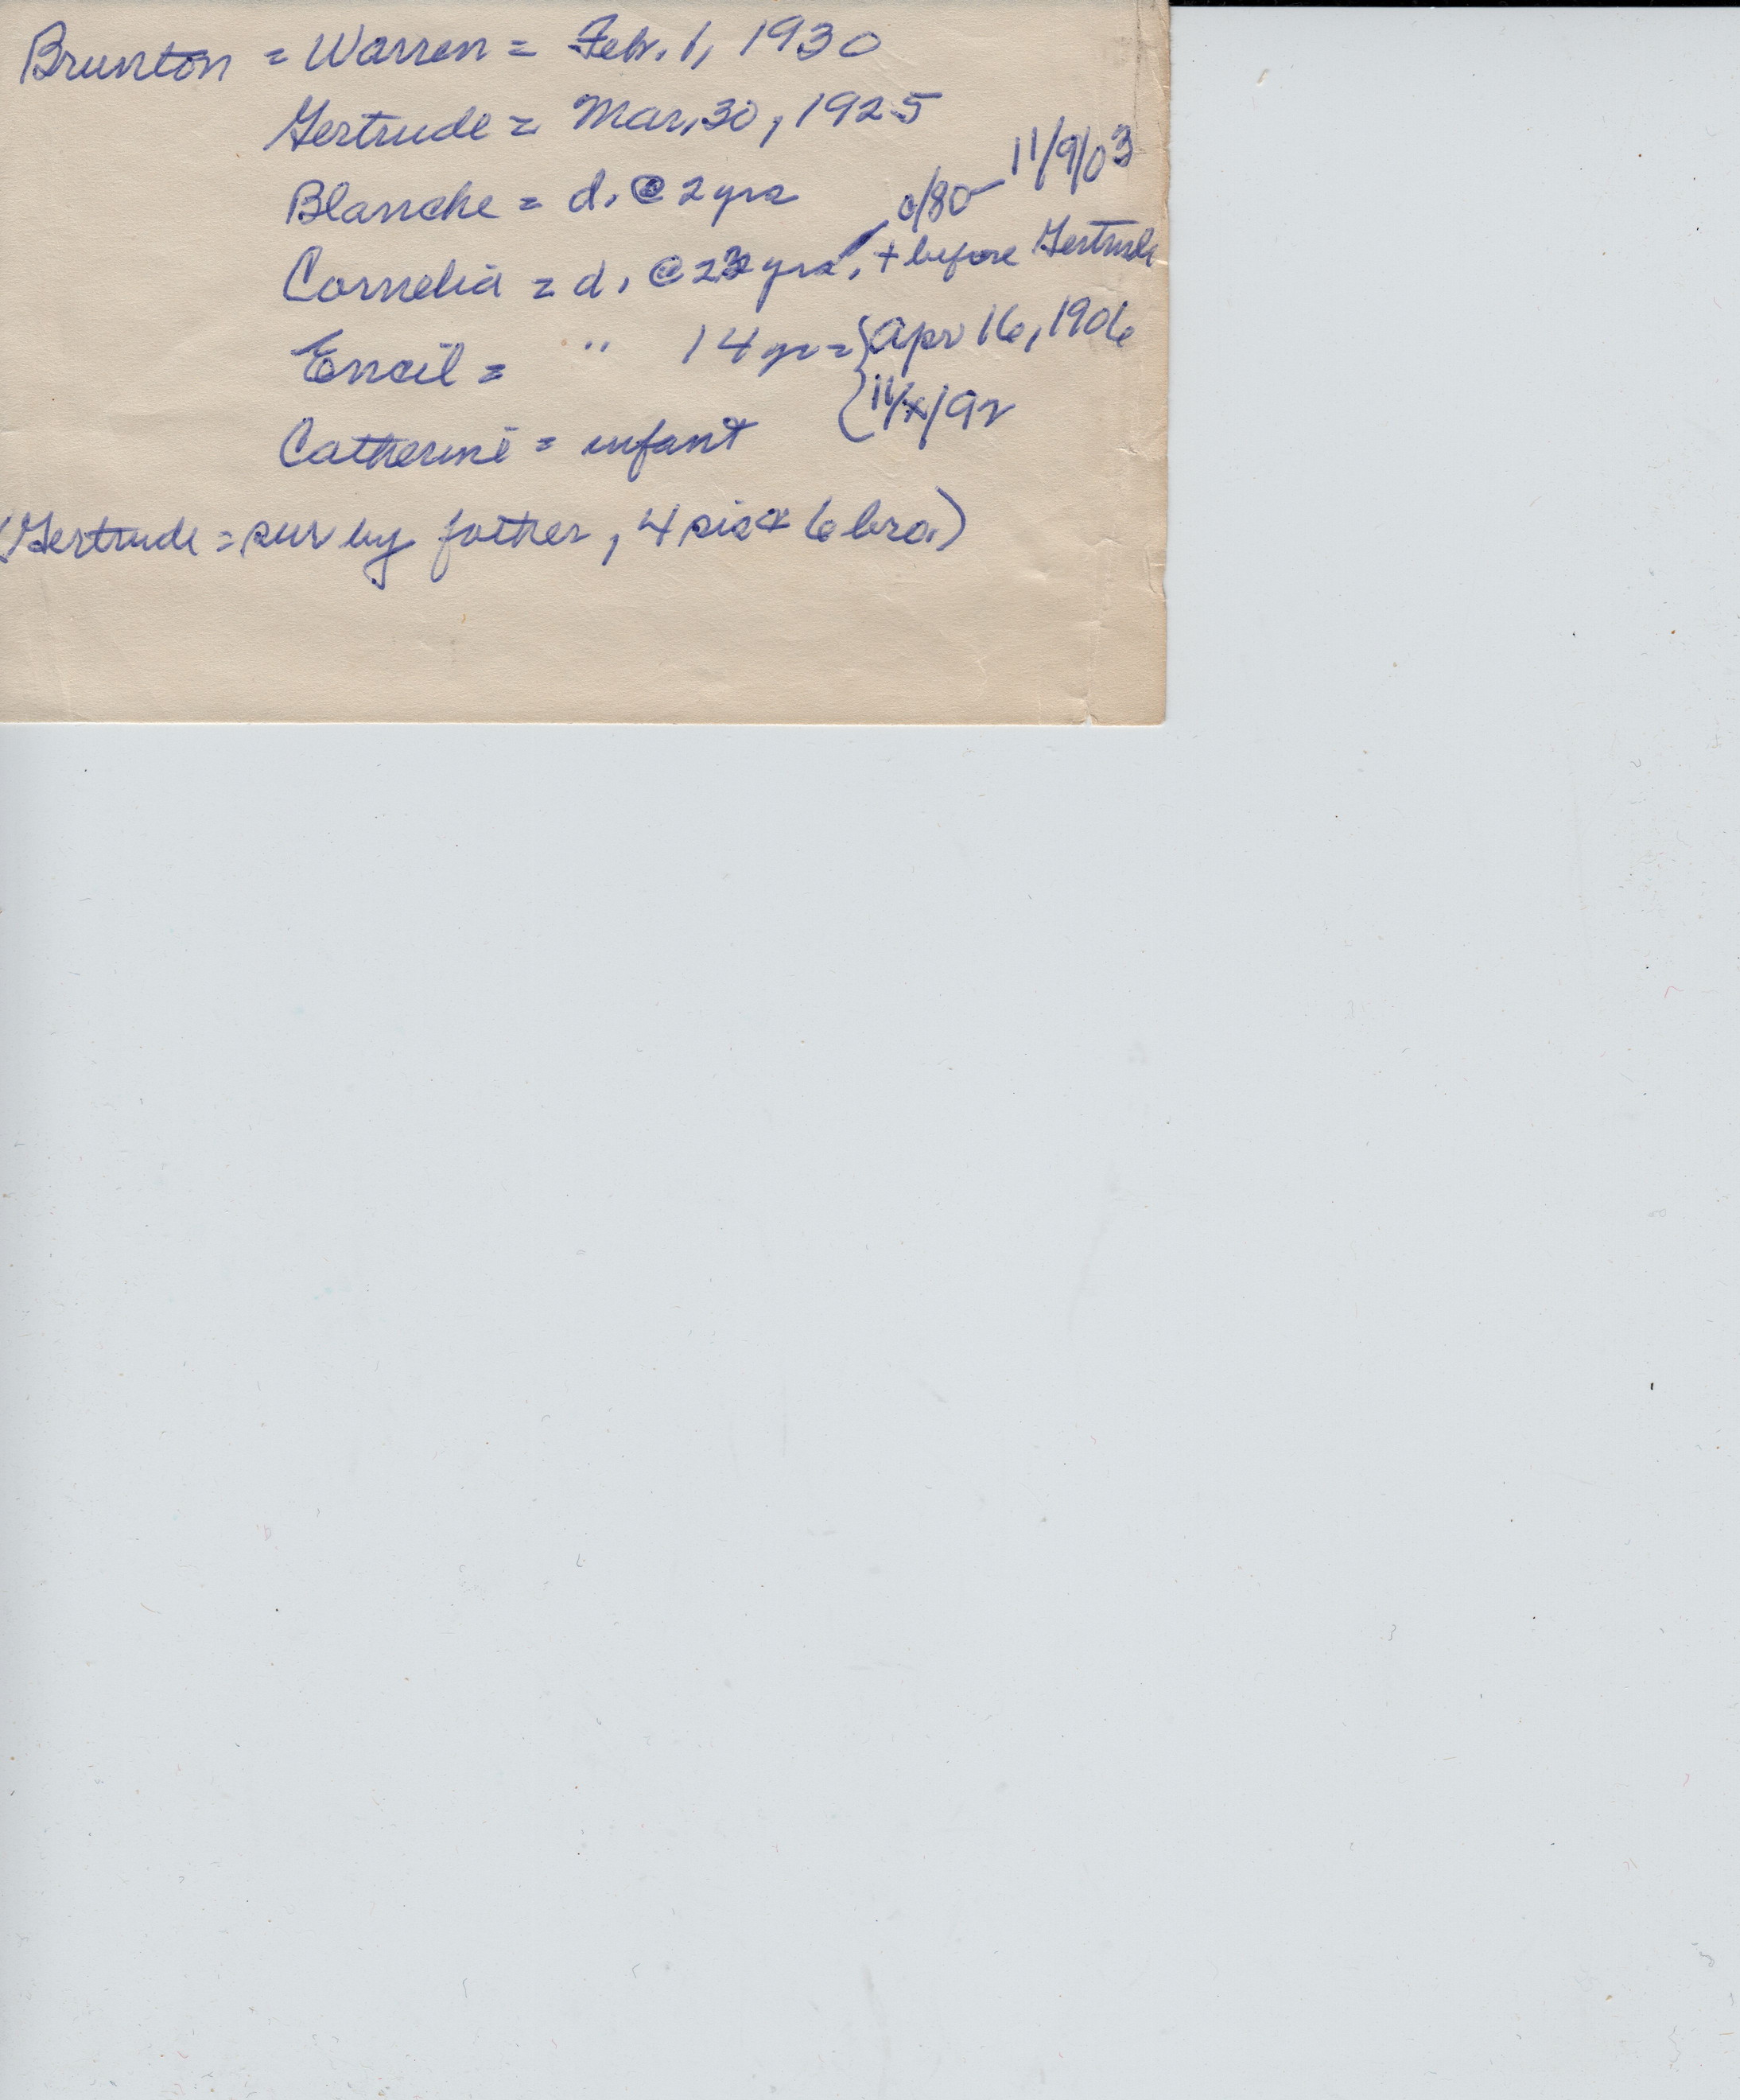 Brunton = Warren = Feb. 1, 1930
Gertrude = Mar. 30, 1925
Blanche = d. @ 2 yrs
/80 - 11/9/03
Cornelia = d. @ 23 yrs, + before Gertrude
Encil = " 14 yr = { Apr 16, 1906
{ 11/ /92
Catherine = infant
(Gertrude = sur by father, 4 sis & 6 bro.)